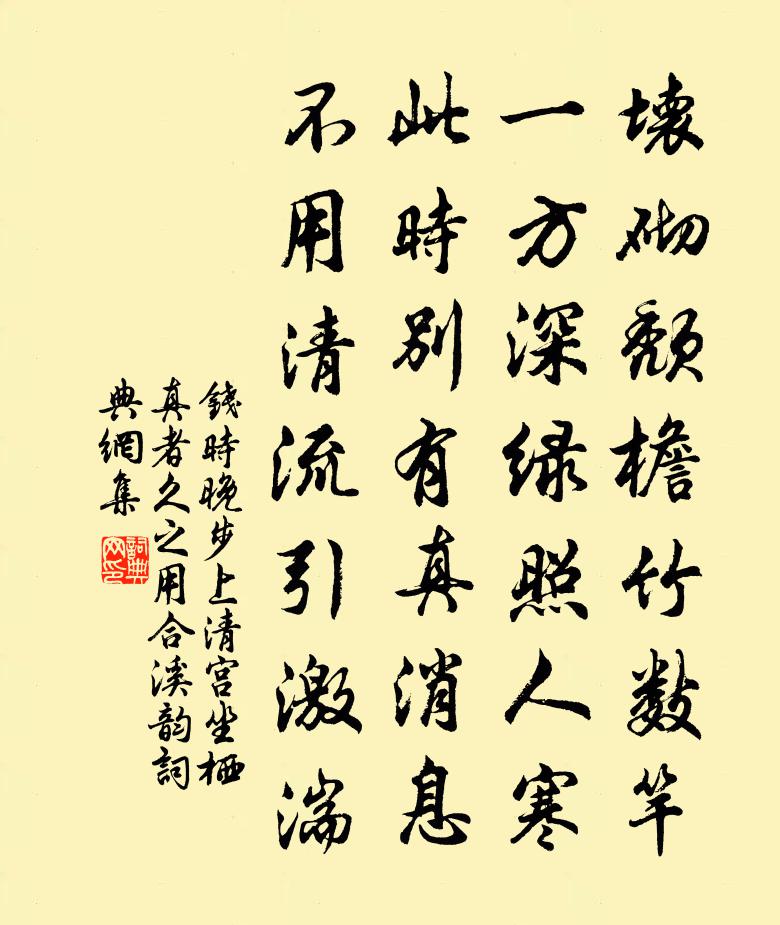 壊砌頽檐竹數竿
一方深緑照人寒
此時别有真消息
不用清流引激湍
錢時晚步上清宮坐栖
真者久之用合溪韵詞
典網集
詞典
网印